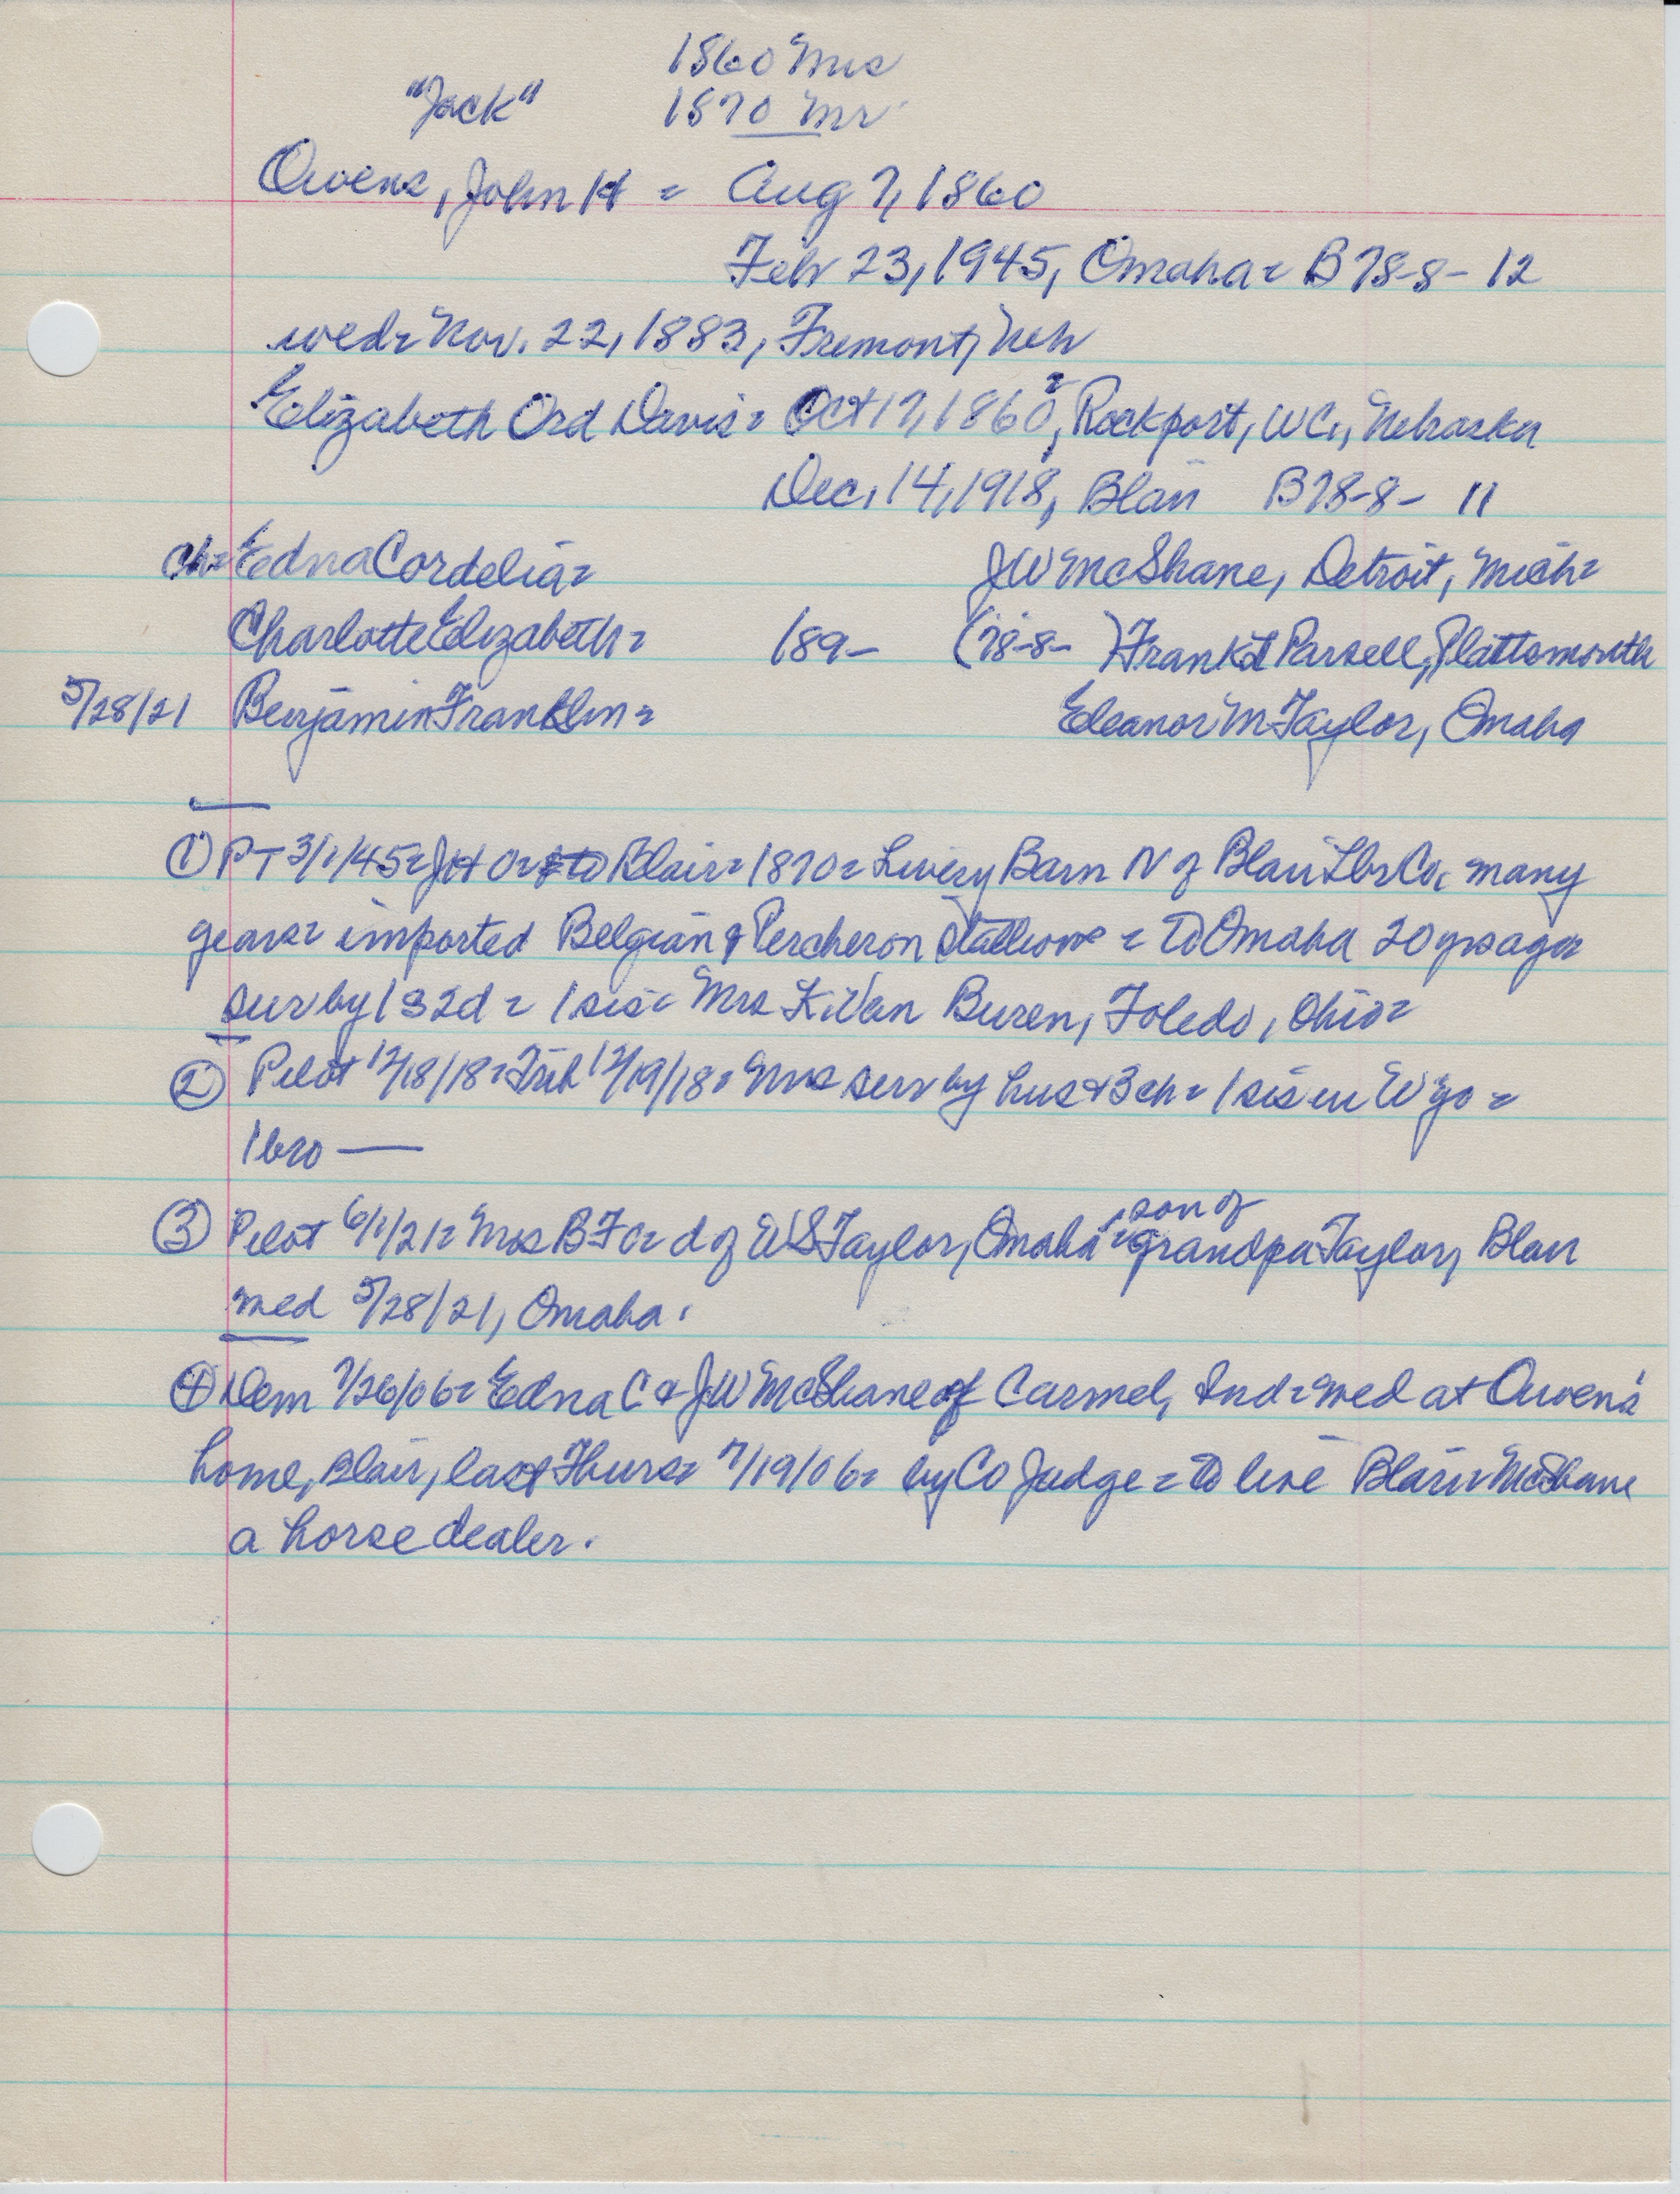 1860 Mrs
"Jack" 1870 Mr.
Owens, John H = Aug 7, 1860
Feb 23, 1945, Omaha = B 78-8- 12
wed = Nov. 22, 1883, Fremont, Neb
Elizabeth Ord Davis = Oct 17, 1860, Rockport, WC., Nebraska
Dec. 14, 1918, Blair B78-8- 11
Ch = Edna Cordelia = JW McShane, Detroit, Mich =
Charlotte Elizabeth = 189- (78-8- ) Frank Parsell, Plattsmouth
5/28/21 Benjamin Franklin = Eleanor M Taylor, Omaha
① PT 3/1/45 = JH O = to Blair = 1870 = Livery Barn N of Blair Lbr Co, many
years = imported Belgian & Percheron Stallions = to Omaha 20 yrs ago =
sur by 1 S 2d = 1 sis = Mrs K Van Buren, Toledo, Ohio =
② Pilot 12/18/18 = Trib 12/19/18 = Mrs surv by hus & 3 ch = 1 sis in Wyo =
1 bro —
③ Pilot 6/1/21 = Mrs BFO = d of WS Taylor, Omaha = son of grandpa Taylor, Blair
med 5/28/21, Omaha.
④ Dem 7/26/06 = Edna C & JW McShane of Carmel, Ind = med at Owen's
home, Blair, last Thurs = 7/19/06 = by Co Judge = to live Blair = McShane
a horse dealer.